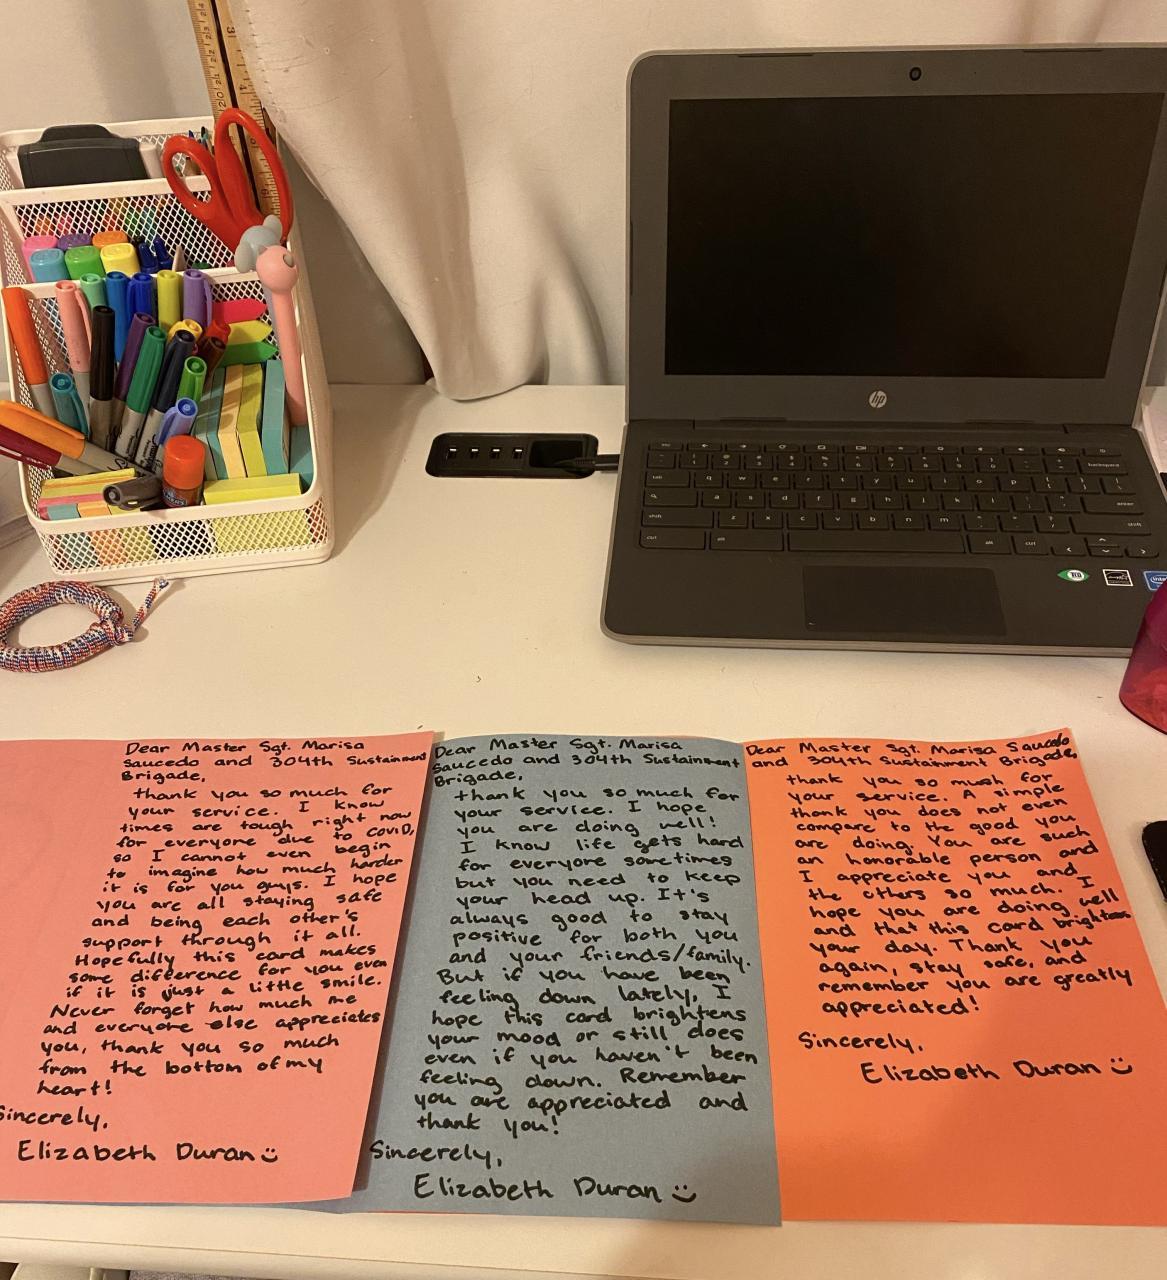 Dear Master Sgt. Marisa
Saucedo and 304th Sustainment
Brigade,
thank you so much for
your service. I know
times are tough right now
for everyone due to covid,
so I cannot even begin
to imagine how much harder
it is for you guys. I hope
you are all staying safe
and being each other's
support through it all.
Hopefully this card makes
some difference for you even
if it is just a little smile.
Never forget how much me
and everyone else appreciates
you, thank you so much
from the bottom of my
heart!
Sincerely,
Elizabeth Duran
Dear Master Sgt. Marisa
Saucedo and 304th Sustainment
Brigade,
thank you so much for
your service. I hope
you are doing well!
I know life gets hard
for everyone sometimes
but you need to keep
your head up. It's
always good to stay
positive for both you
and your friends/family.
But if you have been
feeling down lately, I
hope this card brightens
your mood or still does
even if you haven't been
feeling down. Remember
you are appreciated and
thank you!
Sincerely,
Elizabeth Duran
Dear Master Sgt. Marisa Saucedo
and 304th Sustainment Brigade,
thank you so much for
your service. A simple
thank you does not even
compare to the good you
are doing. You are such
an honorable person and
I appreciate you and
the others so much. I
hope you are doing well
and that this card brightens
your day. Thank you
again, stay safe, and
remember you are greatly
appreciated!
Sincerely,
Elizabeth Duran
hp